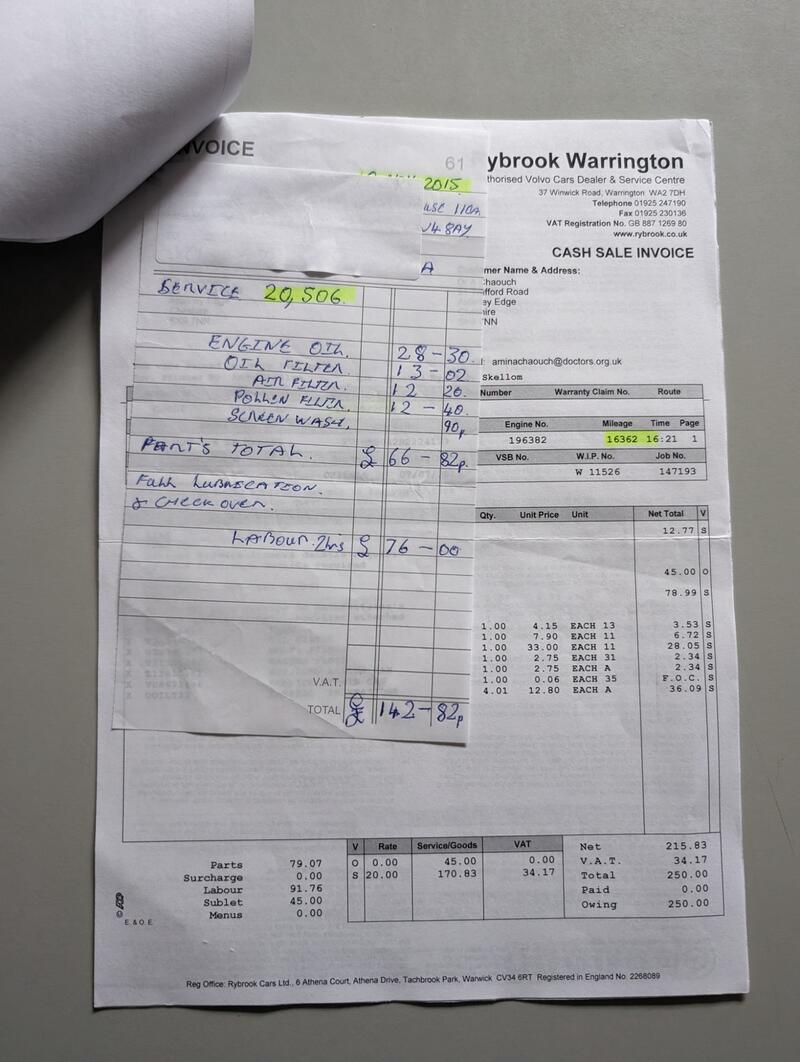 INVOICE
61
2015
SERVICE 20,506
ENGINE OIL. 28-30.
OIL FILTER. 13-02
AIR FILTER. 12 20.
POLLEN FILTER. 12-40.
SCREEN WASH, 90p
PARTS TOTAL. £ 66-82p.
FULL LUBRICATION.
& CHECK OVER.
LABOUR. 2hrs £ 76-00
V.A.T.
TOTAL £ 142-82p
ybrook Warrington
thorised Volvo Cars Dealer & Service Centre
37 Winwick Road, Warrington WA2 7DH
Telephone 01925 247190
Fax 01925 230136
VAT Registration No. GB 887 1269 80
www.rybrook.co.uk
CASH SALE INVOICE
mer Name & Address:
haouch
fford Road
ey Edge
ire
NN
l: aminachaouch@doctors.org.uk
Skellom
Number Warranty Claim No. Route
Engine No. Mileage Time Page
196382 16362 16:21 1
VSB No. W.I.P. No. Job No.
W 11526 147193
Qty. Unit Price Unit Net Total V
12.77 S
45.00 O
78.99 S
1.00 4.15 EACH 13 3.53 S
1.00 7.90 EACH 11 6.72 S
1.00 33.00 EACH 11 28.05 S
1.00 2.75 EACH 31 2.34 S
1.00 2.75 EACH A 2.34 S
1.00 0.06 EACH 35 F.O.C. S
4.01 12.80 EACH A 36.09 S
Parts 79.07
Surcharge 0.00
Labour 91.76
Sublet 45.00
Menus 0.00
V Rate Service/Goods VAT
O 0.00 45.00 0.00
S 20.00 170.83 34.17
Net 215.83
V.A.T. 34.17
Total 250.00
Paid 0.00
Owing 250.00
E. & O. E.
Reg Office: Rybrook Cars Ltd., 6 Athena Court, Athena Drive, Tachbrook Park, Warwick CV34 6RT Registered in England No. 2268089